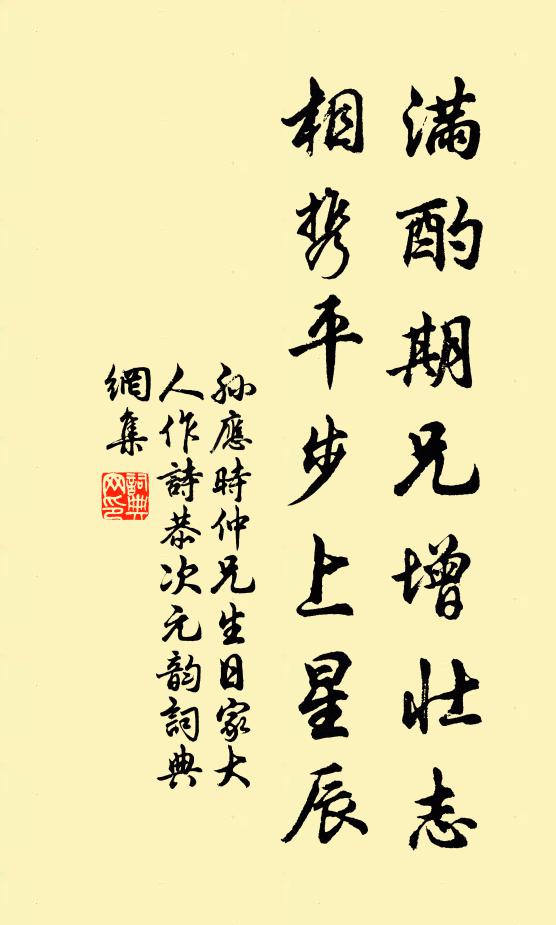 满酌期兄增壮志
相携平步上星辰
孙應時仲兄生日家大
人作詩恭次元韵詞典
網集
詞典
网印